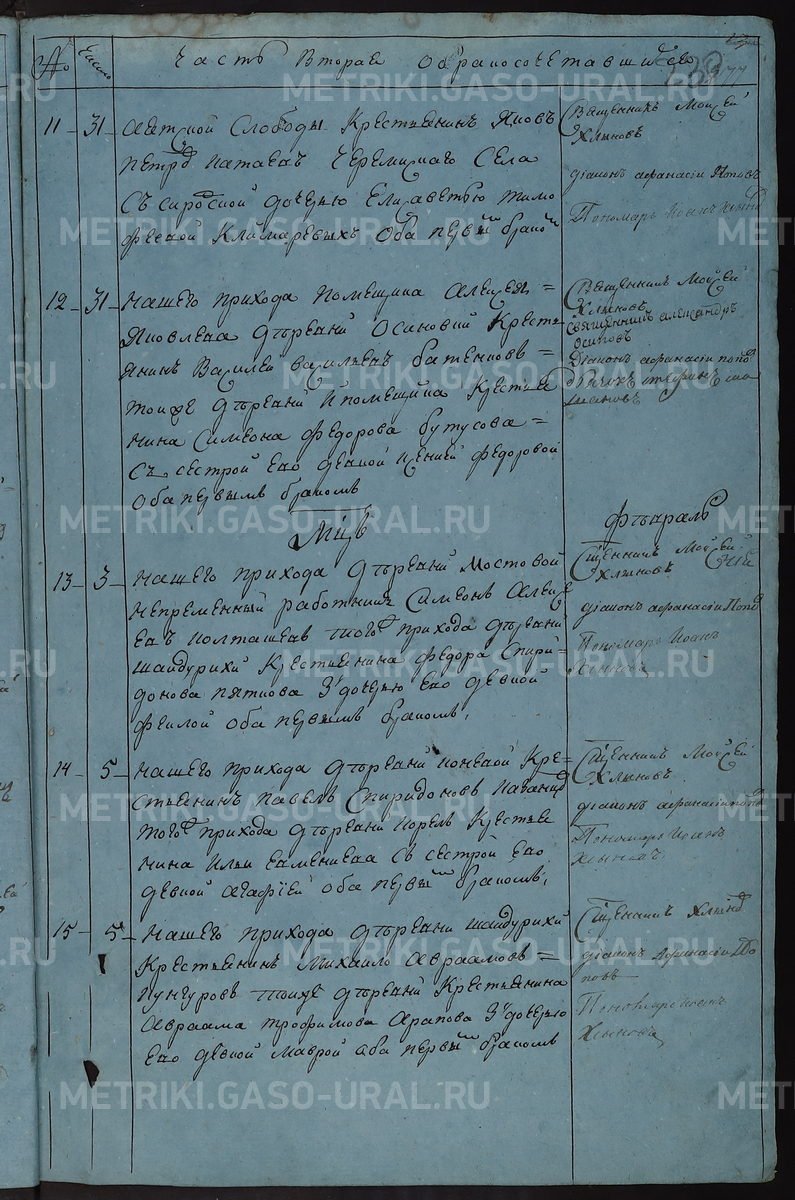 № Число Часть Вторая о бракосочетавшихся
11 31 Аятской Слободы Крестьянинъ Яковъ
Петровъ Черемисскаго Села
Съ дочерью Елизаветою Тимо
феевой оба первымъ бракомъ
Священникъ Мойсей
Хлыновъ
діаконъ Афанасій Поповъ
Пономарь Иоанъ Хлыновъ
12 31 нашего прихода помещика Алексея
Яковлева деревни Осиновки Кресть
янинъ Василей Васильевъ Батенковъ
тойже деревни и помещика Крестья
нина Симеона Федорова Бутусова
съ сестрой его девкой Ксенией Федоровой
оба первымъ бракомъ
Священникъ Мойсей
Хлыновъ
священникъ александръ
осиповъ
діаконъ афанасій
Мцъ Февраль
13 3 нашего прихода деревни Мостовой
непременный работникъ Симеонъ Алексе
евъ Полташевъ тогожъ прихода деревни
шайдурихи Крестьянина Федора Спири
донова Пяткова з дочерью его девкой
феклой оба первымъ бракомъ,
Священникъ Мойсей
Хлыновъ
діаконъ афанасій Поповъ
Пономарь Иоанъ
Хлыновъ
14 5 нашего прихода деревни Кре
стьянинъ Павелъ Спиридоновъ
тогожъ прихода деревни Корелъ Крестья
нина Ильи с сестрой его
девкой Агафіей оба первымъ бракомъ,
Священникъ Мойсей
Хлыновъ
діаконъ афанасій поповъ
Пономарь Иоанъ
Хлыновъ
15 5 нашего прихода деревни шайдурихи
Крестьянинъ Михайло Авраамовъ
Кунгуровъ тойже деревни Крестьянина
Авраама Трофимова Арапова з дочерью
его девкой Маврой оба первымъ бракомъ
Священникъ Хлыновъ
діаконъ Афанасій По
повъ
Пономарь Иоанъ
Хлыновъ
METRIKI.GASO-URAL.RU